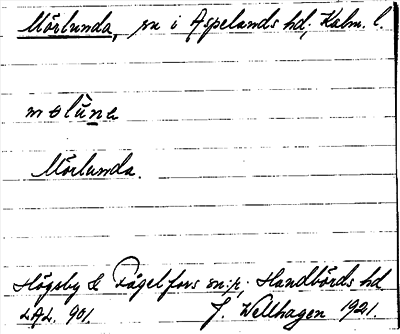 Mörlunda, sn i Aspelands hd, Kalm. l.
Mörlunda.
Högsby & Fågelfors sn:r, Handbörds hd.
J. Wellhagen 1921.